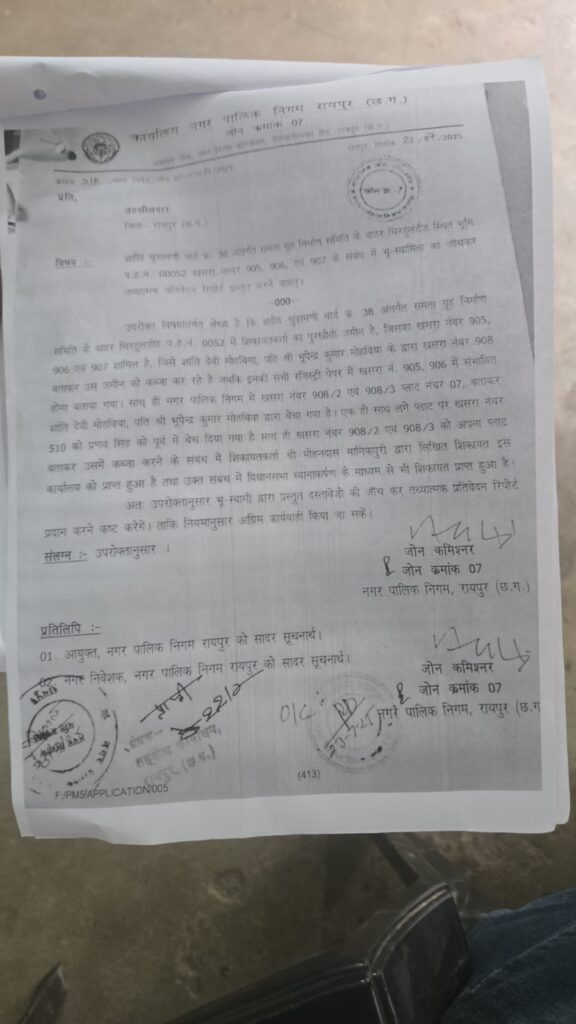 कार्यालय नगर पालिक निगम रायपुर (छ.ग.)
जोन क्रमांक 07
रायपुर, दिनांक 21/07/2025
प्रति,
तहसीलदार
जिला- रायपुर (छ.ग.)
विषय :- शहीद चुड़ामणी वार्ड क्र. 38 अंतर्गत समता गृह निर्माण समिति के बाहर चिरहुलडीह स्थित भूमि
प.ह.नं. 00052 खसरा नम्बर 905, 906, एवं 907 के संबंध में भू-स्वामित्व का जाँचकर
तथ्यात्मक प्रतिवेदन रिपोर्ट प्रस्तुत करने बाबत्।
---000---
उपरोक्त विषयांतर्गत लेख्य है कि शहीद चुड़ामणी वार्ड क्र. 38 अंतर्गत समता गृह निर्माण
समिति के बाहर चिरहुलडीह प.ह.नं. 0052 में शिकायतकर्ता का पुरखौती जमीन है, जिसका खसरा नंबर 905,
906 एवं 907 शामिल है, जिसे शांति देवी मोहबिया, पति श्री भूपेन्द्र कुमार मोहबिया के द्वारा खसरा नंबर 908
बताकर उस जमीन को कब्जा कर रहे है जबकि इनकी सभी रजिस्ट्री पेपर में खसरा नं. 905, 906 में संभावित
होना बताया गया। साथ ही नगर पालिक निगम में खसरा नंबर 908/2 एवं 908/3 प्लाट नंबर 07, बताकर
शांति देवी मोहबिया, पति श्री भूपेन्द्र कुमार मोहबिया द्वारा बेचा गया है। एक ही साथ लगे प्लाट पर खसरा नंबर
510 को प्रणव सिंह को पूर्व में बेच दिया गया है साथ ही खसरा नंबर 908/2 एवं 908/3 को अपना प्लाट
बताकर उसमें कब्जा करने के संबंध में शिकायतकर्ता श्री मोहनदास मानिकपुरी द्वारा लिखित शिकायत इस
कार्यालय को प्राप्त हुआ है तथा उक्त संबंध में विधानसभा ध्यानाकर्षण के माध्यम से भी शिकायत प्राप्त हुआ है।
अतः उपरोक्तानुसार भू-स्वामी द्वारा प्रस्तुत दस्तावेजो की जाँच कर तथ्यात्मक प्रतिवेदन रिपोर्ट
प्रदान करने कष्ट करेगे। ताकि नियमानुसार अग्रिम कार्यवाही किया जा सकें।
संलग्न :- उपरोक्तानुसार ।
जोन कमिश्नर
जोन क्रमांक 07
नगर पालिक निगम, रायपुर (छ.ग.)
प्रतिलिपि :-
01. आयुक्त, नगर पालिक निगम रायपुर को सादर सूचनार्थ।
02. नगर निवेशक, नगर पालिक निगम रायपुर को सादर सूचनार्थ।
जोन कमिश्नर
जोन क्रमांक 07
नगर पालिक निगम, रायपुर (छ.ग
O/C
तहसील कार्यालय,
रायपुर (छ.ग.)
(413)
F:/PM5/APPLICATION/005